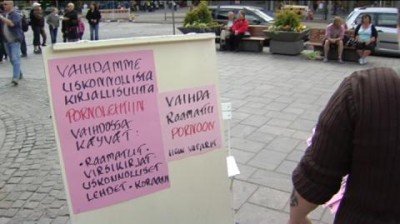 VAIHDAMME
USKONNOLLISTA
KIRJALLISUUTTA
PORNOLEHTIIN
VAIHDOSSA
KÄYVÄT
• RAAMATUT •
VIRSIKIRJAT
USKONNOLLISET
LEHDET • KORAANI
VAIHDA
RAAMATTUSI
PORNOON